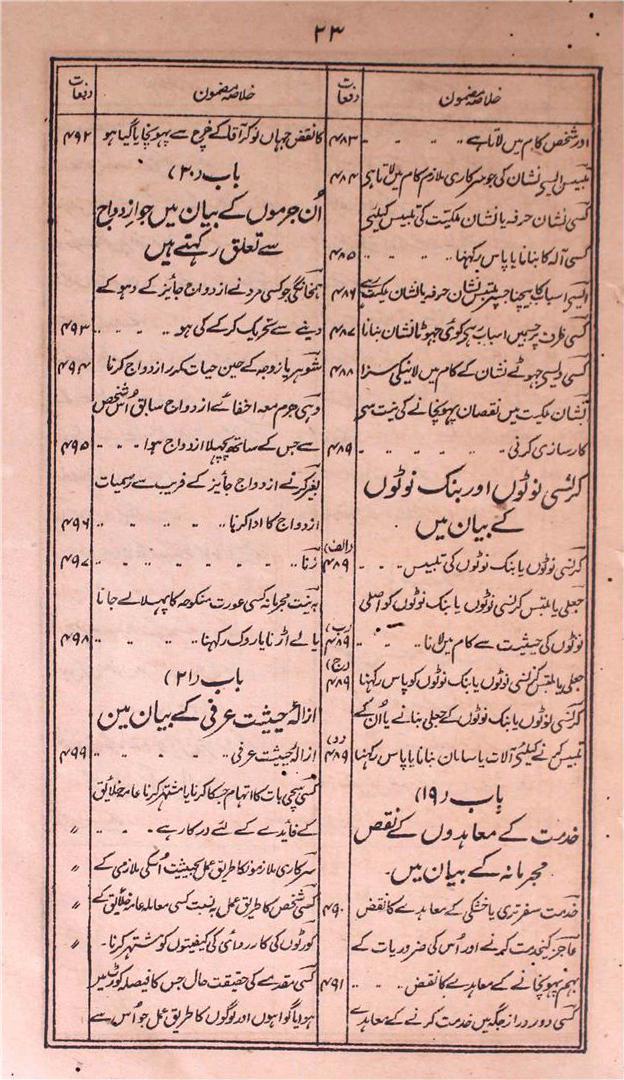 ۲۳
خلاصہ مضمون دفعات
اور شخص کام میں لاتا ہے ۴۸۳
تلبیس ایسی نشان کی جو سرکاری ملازم کام میں لاتا ہی ۴۸۴
کسی نشان حرفہ یا نشان ملکیت کی تلبیس کیلئی
کسی آلہ کا بنانا یا پاس رکہنا ۴۸۵
ایسی اسباب کا بیچنا جسپر ملتبس نشان حرفہ یا نشان ملکیت ہے ۴۸۶
کسی ظرف پر جسمیں اسباب رہی کوئی جہوٹا نشان بنانا ۴۸۷
کسی ایسی جہوٹے نشان کے کام میں لانیکی سزا ۴۸۸
نشان ملکیت میں نقصان پہونچانے کی نیت سی
کارسازی کرنی ۴۸۹
کرنسی نوٹوں اور بنک نوٹوں
کے بیان میں
کرنسی نوٹوں یا بنک نوٹوں کی تلبیس ۴۸۹ (الف)
جعلی یا ملتبس کرنسی نوٹوں یا بنک نوٹوں کو اصلی
نوٹوں کی حیثیت سے کام میں لانا ۴۸۹ (ب)
جعلی یا ملتبس کرنسی نوٹوں یا بنک نوٹوں کو پاس رکہنا ۴۸۹ (ج)
کرنسی نوٹوں یا بنک نوٹوں کے جعلی بنانے یا اُن کے
تلبیس کرنے کیلئی آلات یا سامان بنانا یا پاس رکہنا ۴۸۹ (د)
باب (۱۹)
خدمت کے معاہدوں کے نقض
مجرمانہ کے بیان میں۔
خدمت سفر تری یا خشکی کے معاہدے کا نقض ۴۹۰
عاجز کی خدمت کرنے اور اُس کی ضروریات کے
بہم پہونچانے کے معاہدے کا نقض ۴۹۱
کسی دور دراز جگہ میں خدمت کرنے کے معاہدے
خلاصہ مضمون دفعات
کا نقض جہاں نوکر آقا کے خرچ سے پہونچایا گیا ہو ۴۹۲
باب (۲۰)
اُن جرموں کے بیان میں جو ازدواج
سے تعلق رکہتے ہیں
ہمخانگی جو کسی مرد نے ازدواج جائیز کے دہوکے
دینے سے تحریک کر کے کی ہو ۴۹۳
شوہر یا زوجہ کے حین حیات مکرر ازدواج کرنا ۴۹۴
وہی جرم معہ اخفائے ازدواج سابق اُس شخص
سے جس کے ساتھ پچہلا ازدواج ہوا ۴۹۵
بغیر کرنے ازدواج جائیز کے فریب سے رسمیات
ازدواج کا ادا کرنا ۴۹۶
زنا ۴۹۷
بہ نیت مجرمانہ کسی عورت منکوحہ کا پہسلا لے جانا
یا لے اڑنا یا روک رکہنا ۴۹۸
باب (۲۱)
ازالہ حیثیت عرفی کے بیان مین
ازالہ حیثیت عرفی ۴۹۹
کسی سچی بات کا اتہام جسکا کرنا یا مشتہر کرنا عامہ خلائق
کے فائیدے کے لئے درکار ہے ״
سرکاری ملازمونکا طریق عمل بحیثیت اُسکی ملازمی کے ״
کسی شخص کا طریق عمل بہ نسبت کسی معاملہ عامہ خلائق کے ״
کورٹوں کی کارروائی کی کیفیتوں کو مشتہر کرنا۔ ״
کسی مقدمے کی حقیقت حال جس کا فیصلہ کورٹ میں
ہو یا گواہوں اور لوگوں کا طریق عمل جو اُس سے